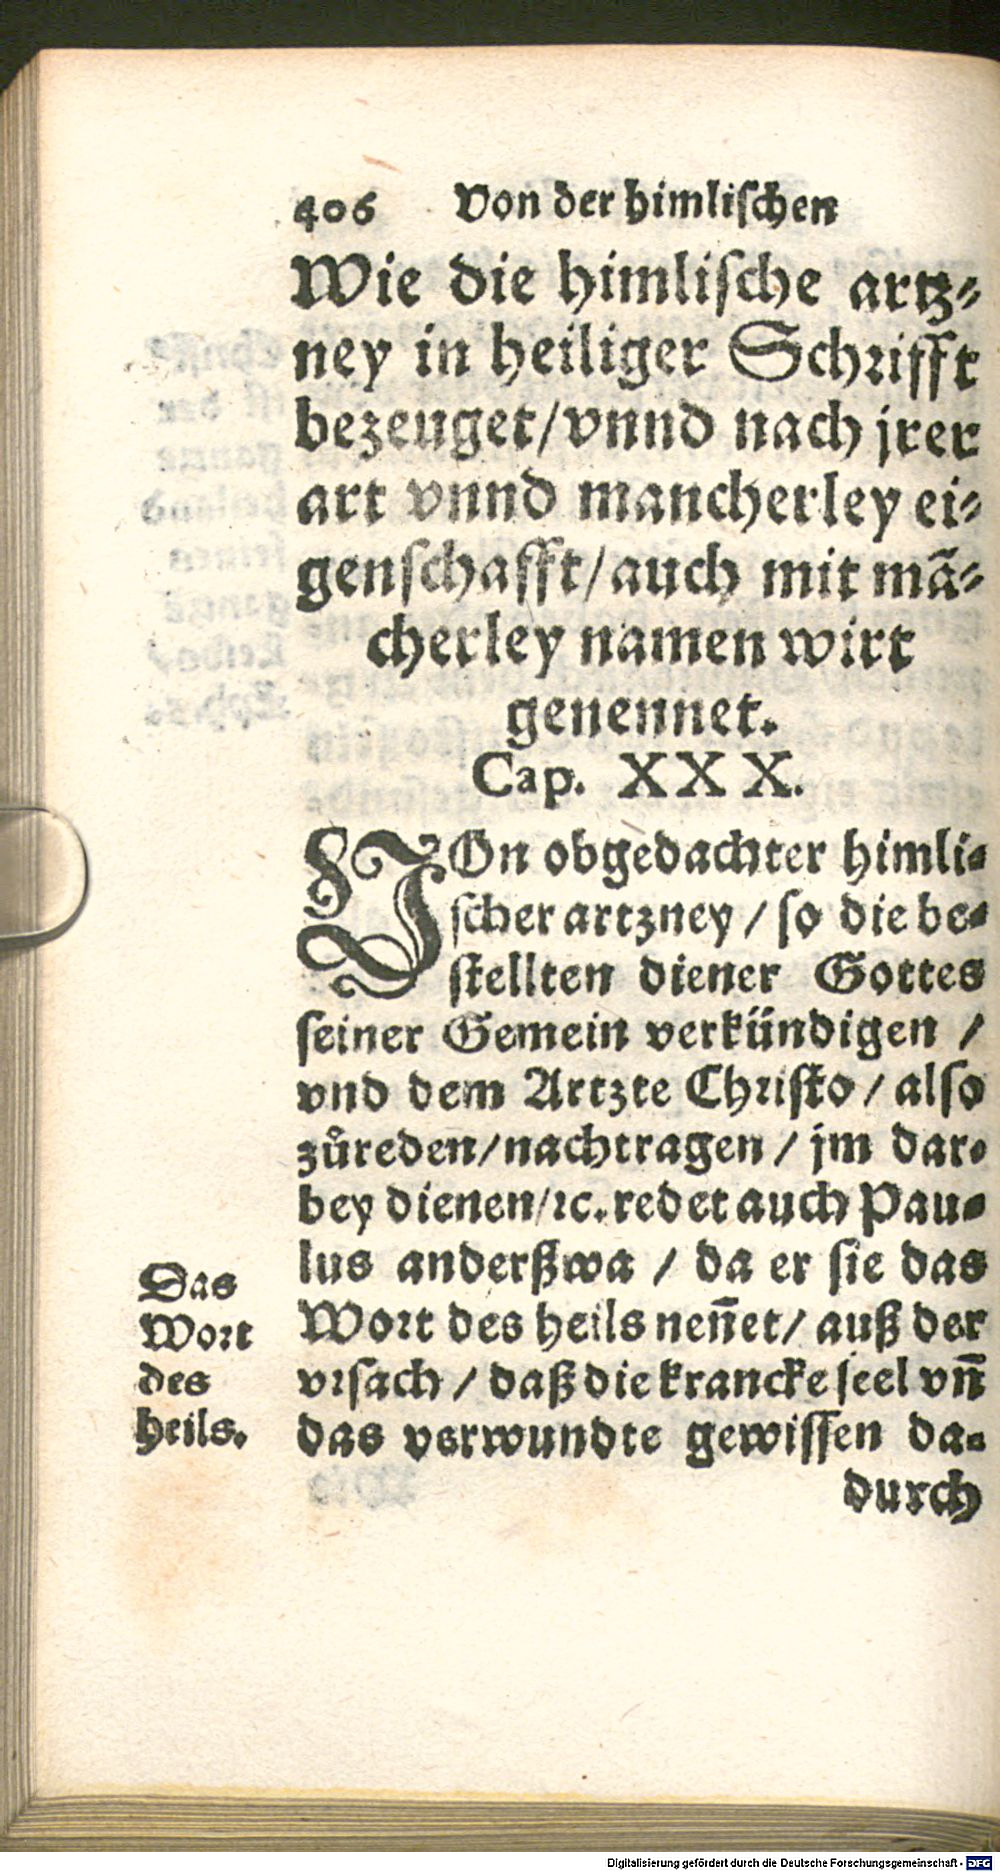 406 Von der himlischen
Wie die himlische artz⸗
ney in heiliger Schrifft
bezeuget/vnnd nach jrer
art vnnd mancherley ei⸗
genschafft/auch mit mā⸗
cherley namen wirt
genennet.
Cap. XXX.
VOn obgedachter himli⸗
scher artzney / so die be⸗
stellten diener Gottes
seiner Gemein verkündigen /
vnd dem Artzte Christo / also
zůreden/nachtragen / jm dar⸗
bey dienen/ꝛc. redet auch Pau⸗
lus anderßwa / da er sie das
Wort des heils neñet/ auß der
vrsach / daß die krancke seel vñ
das verwundte gewissen da⸗
durch
Das
Wort
des
heils.
Digitalisierung gefördert durch die Deutsche Forschungsgemeinschaft - DFG